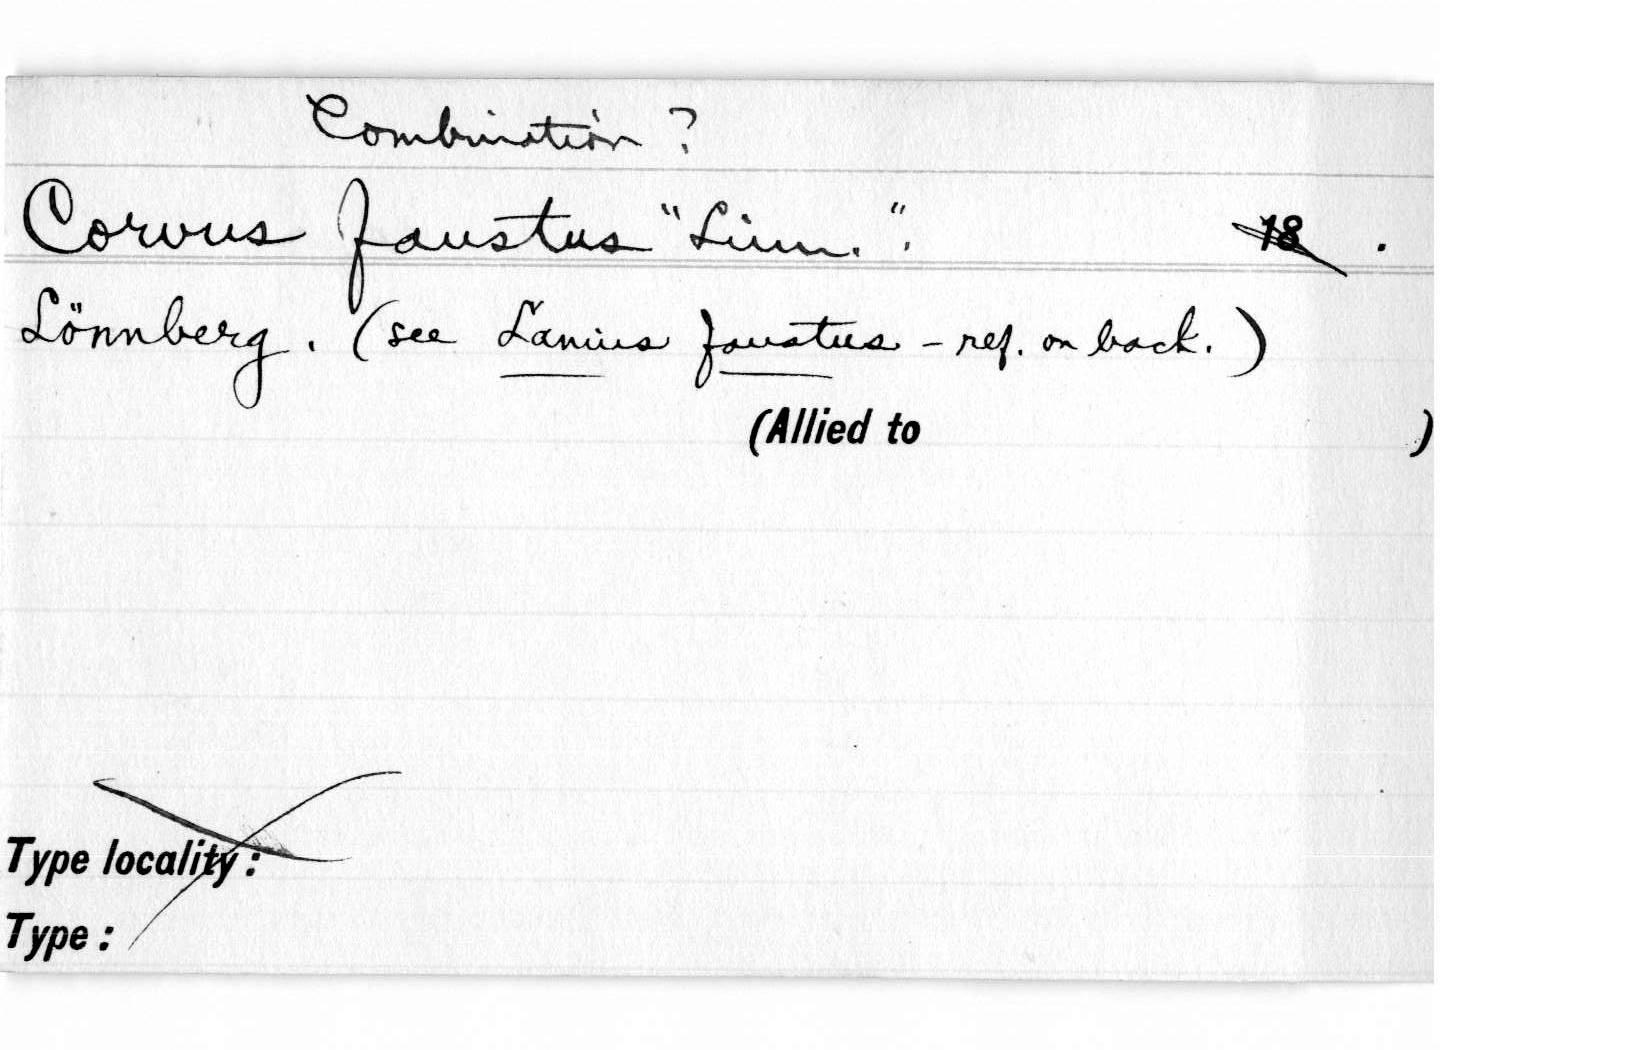 Combination?
Corvus faustus "Linn.". 18 .
Lönnberg. (see Lanius faustus - ref. on back.)
(Allied to )
Type locality:
Type: